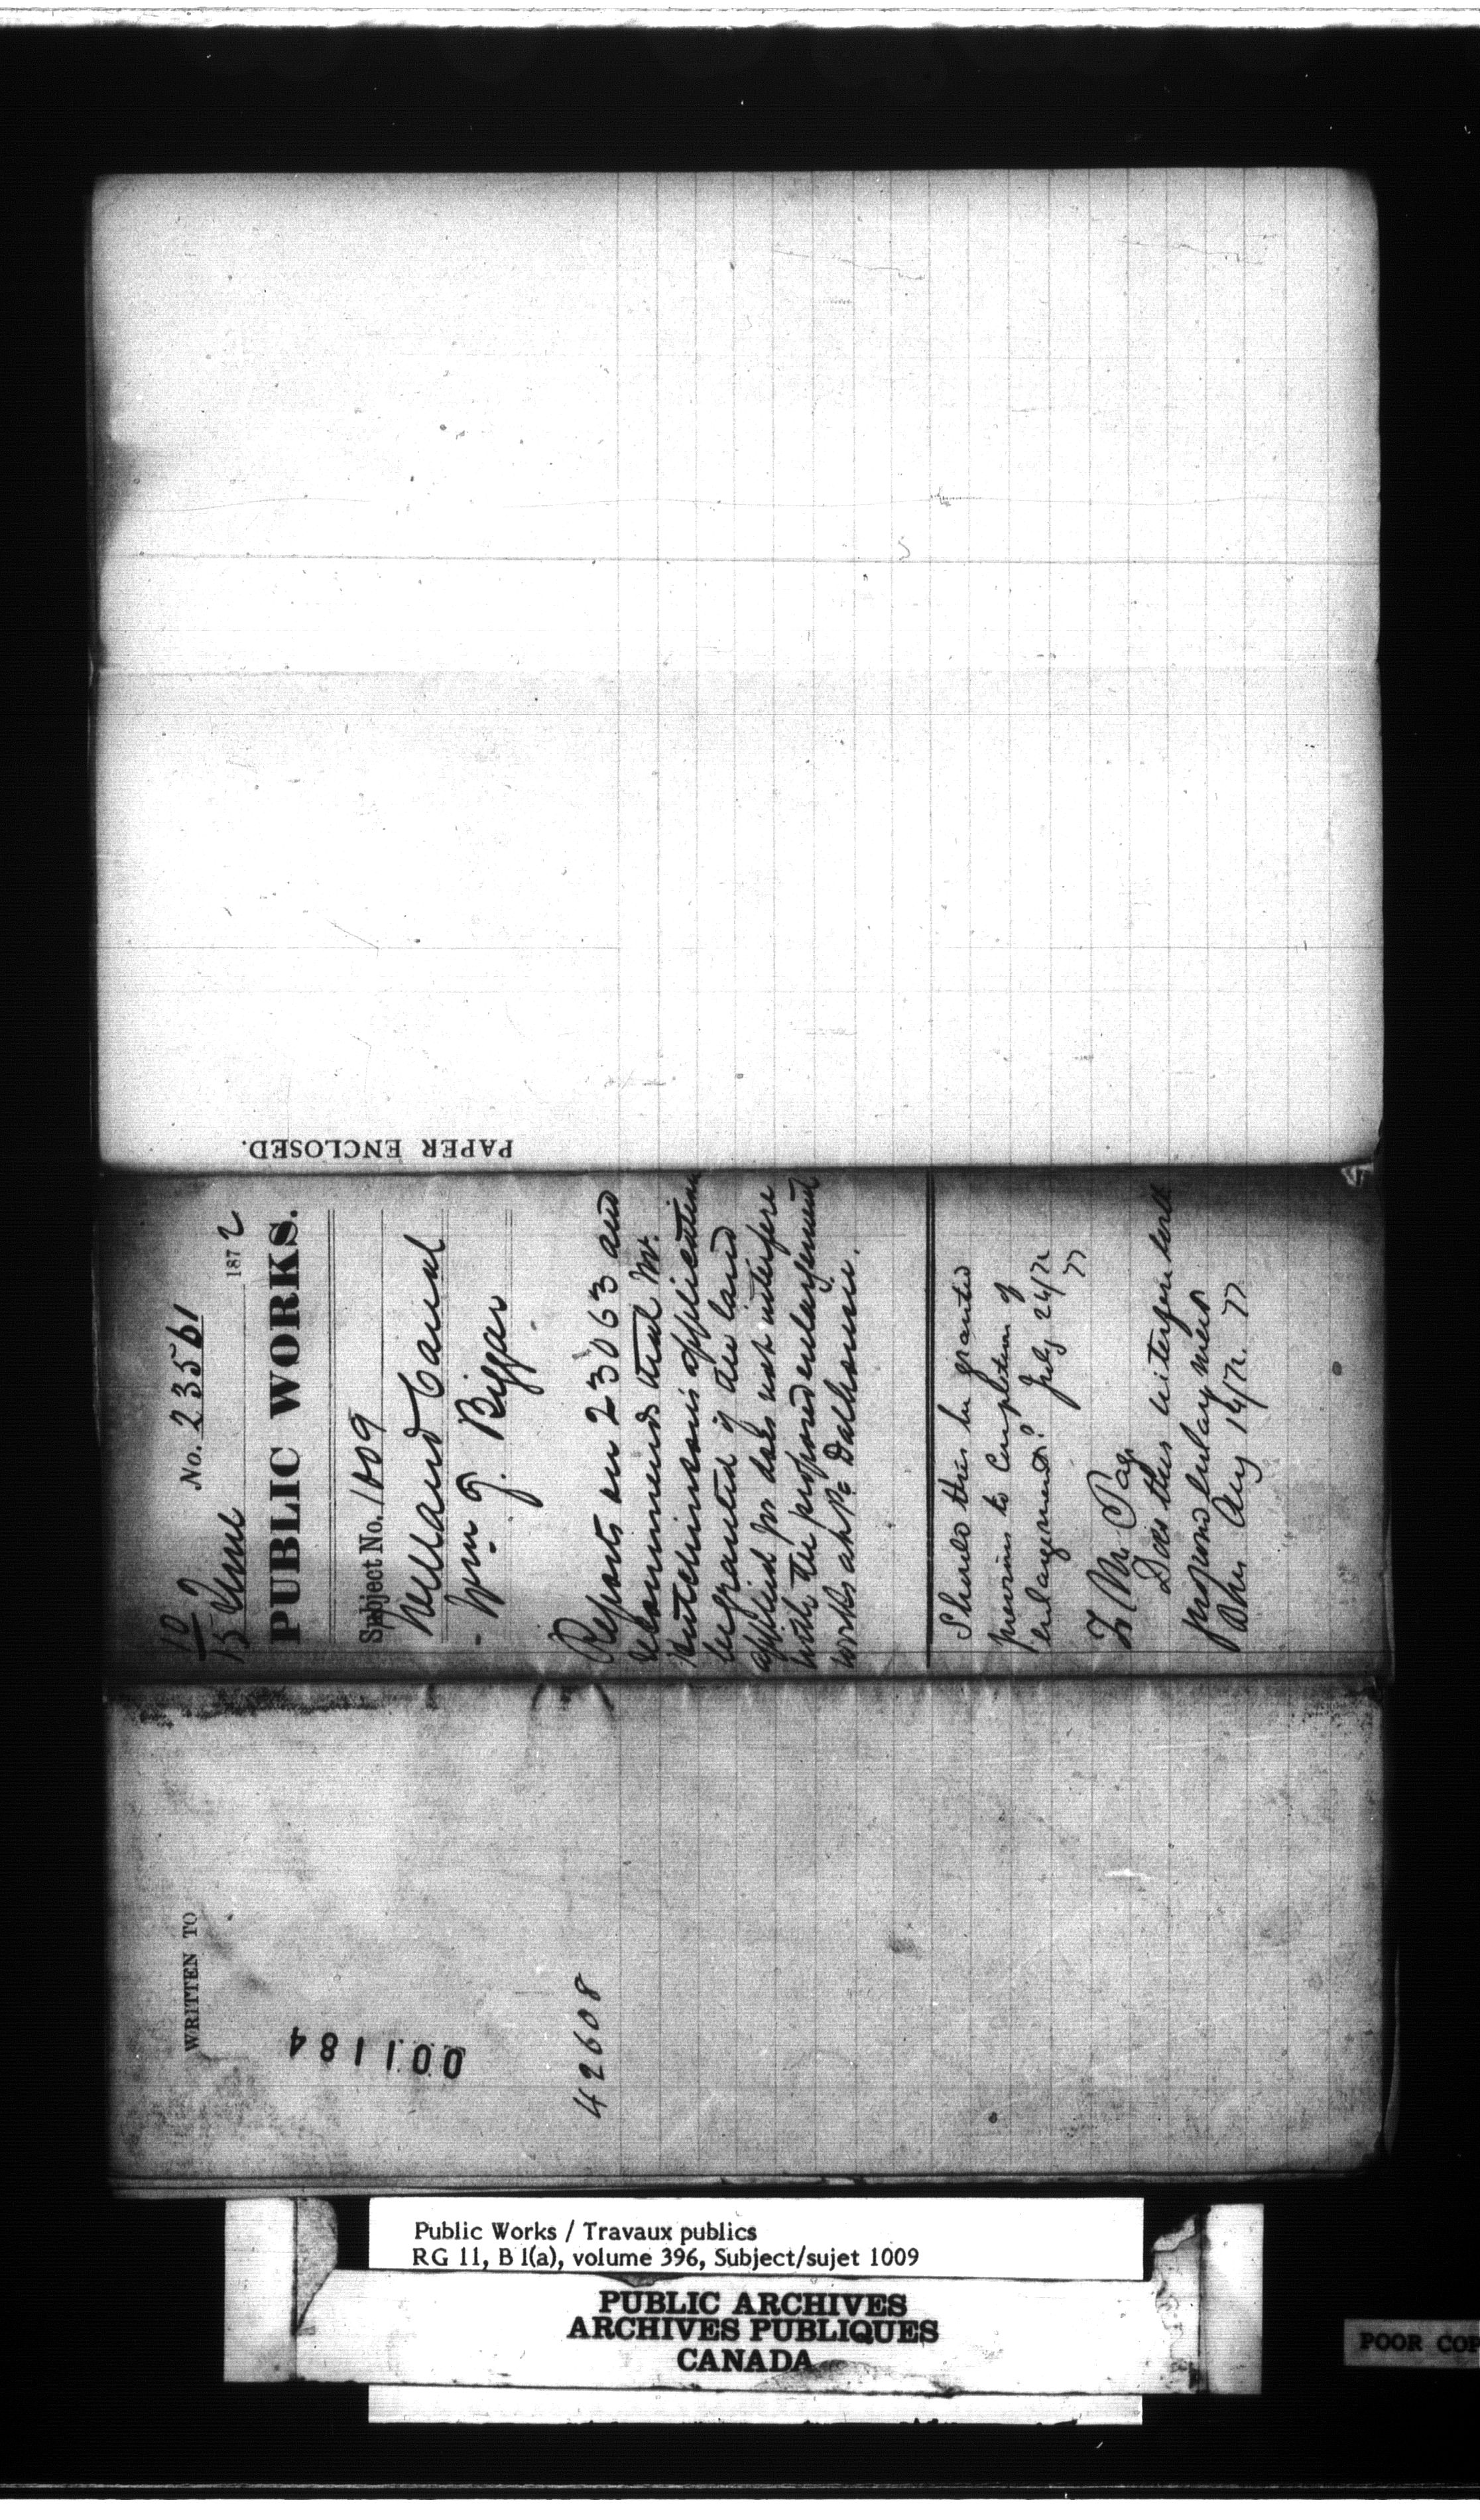 PAPER ENCLOSED.
No. 23561
15 June 1872
PUBLIC WORKS.
Subject No. 1009
Welland Canal
Wm G. Bigger
Reports on 23063 and
recommends that Mr.
Hutchinson's application
be granted if the land
applied for does not interfere
with the proposed enlargement
works at Pt Dalhousie.
Should this be granted
previous to completion of
enlargement? July 24/72
To Mr Page
Does this interfere with
proposed enlargement
Aug 14/72.
WRITTEN TO
001184
42608
Public Works / Travaux publics
RG 11, B 1(a), volume 396, Subject/sujet 1009
PUBLIC ARCHIVES
ARCHIVES PUBLIQUES
CANADA
POOR COP